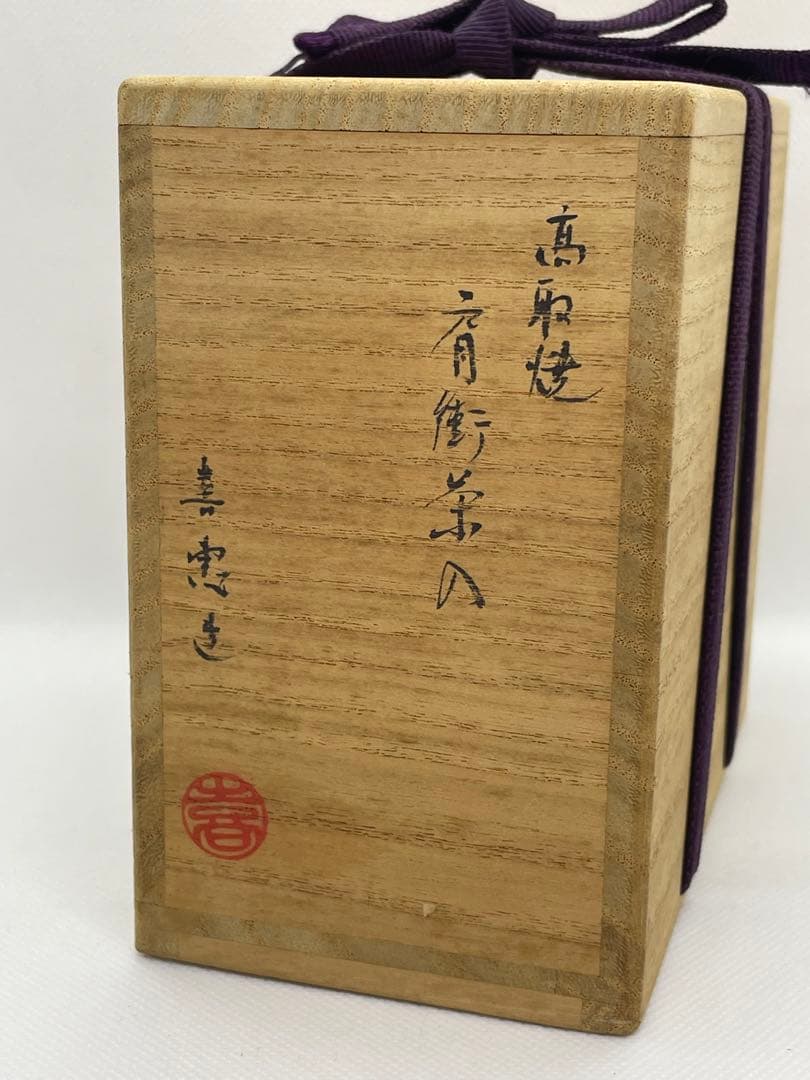 高取焼
肩衝茶入
喜恵造
喜